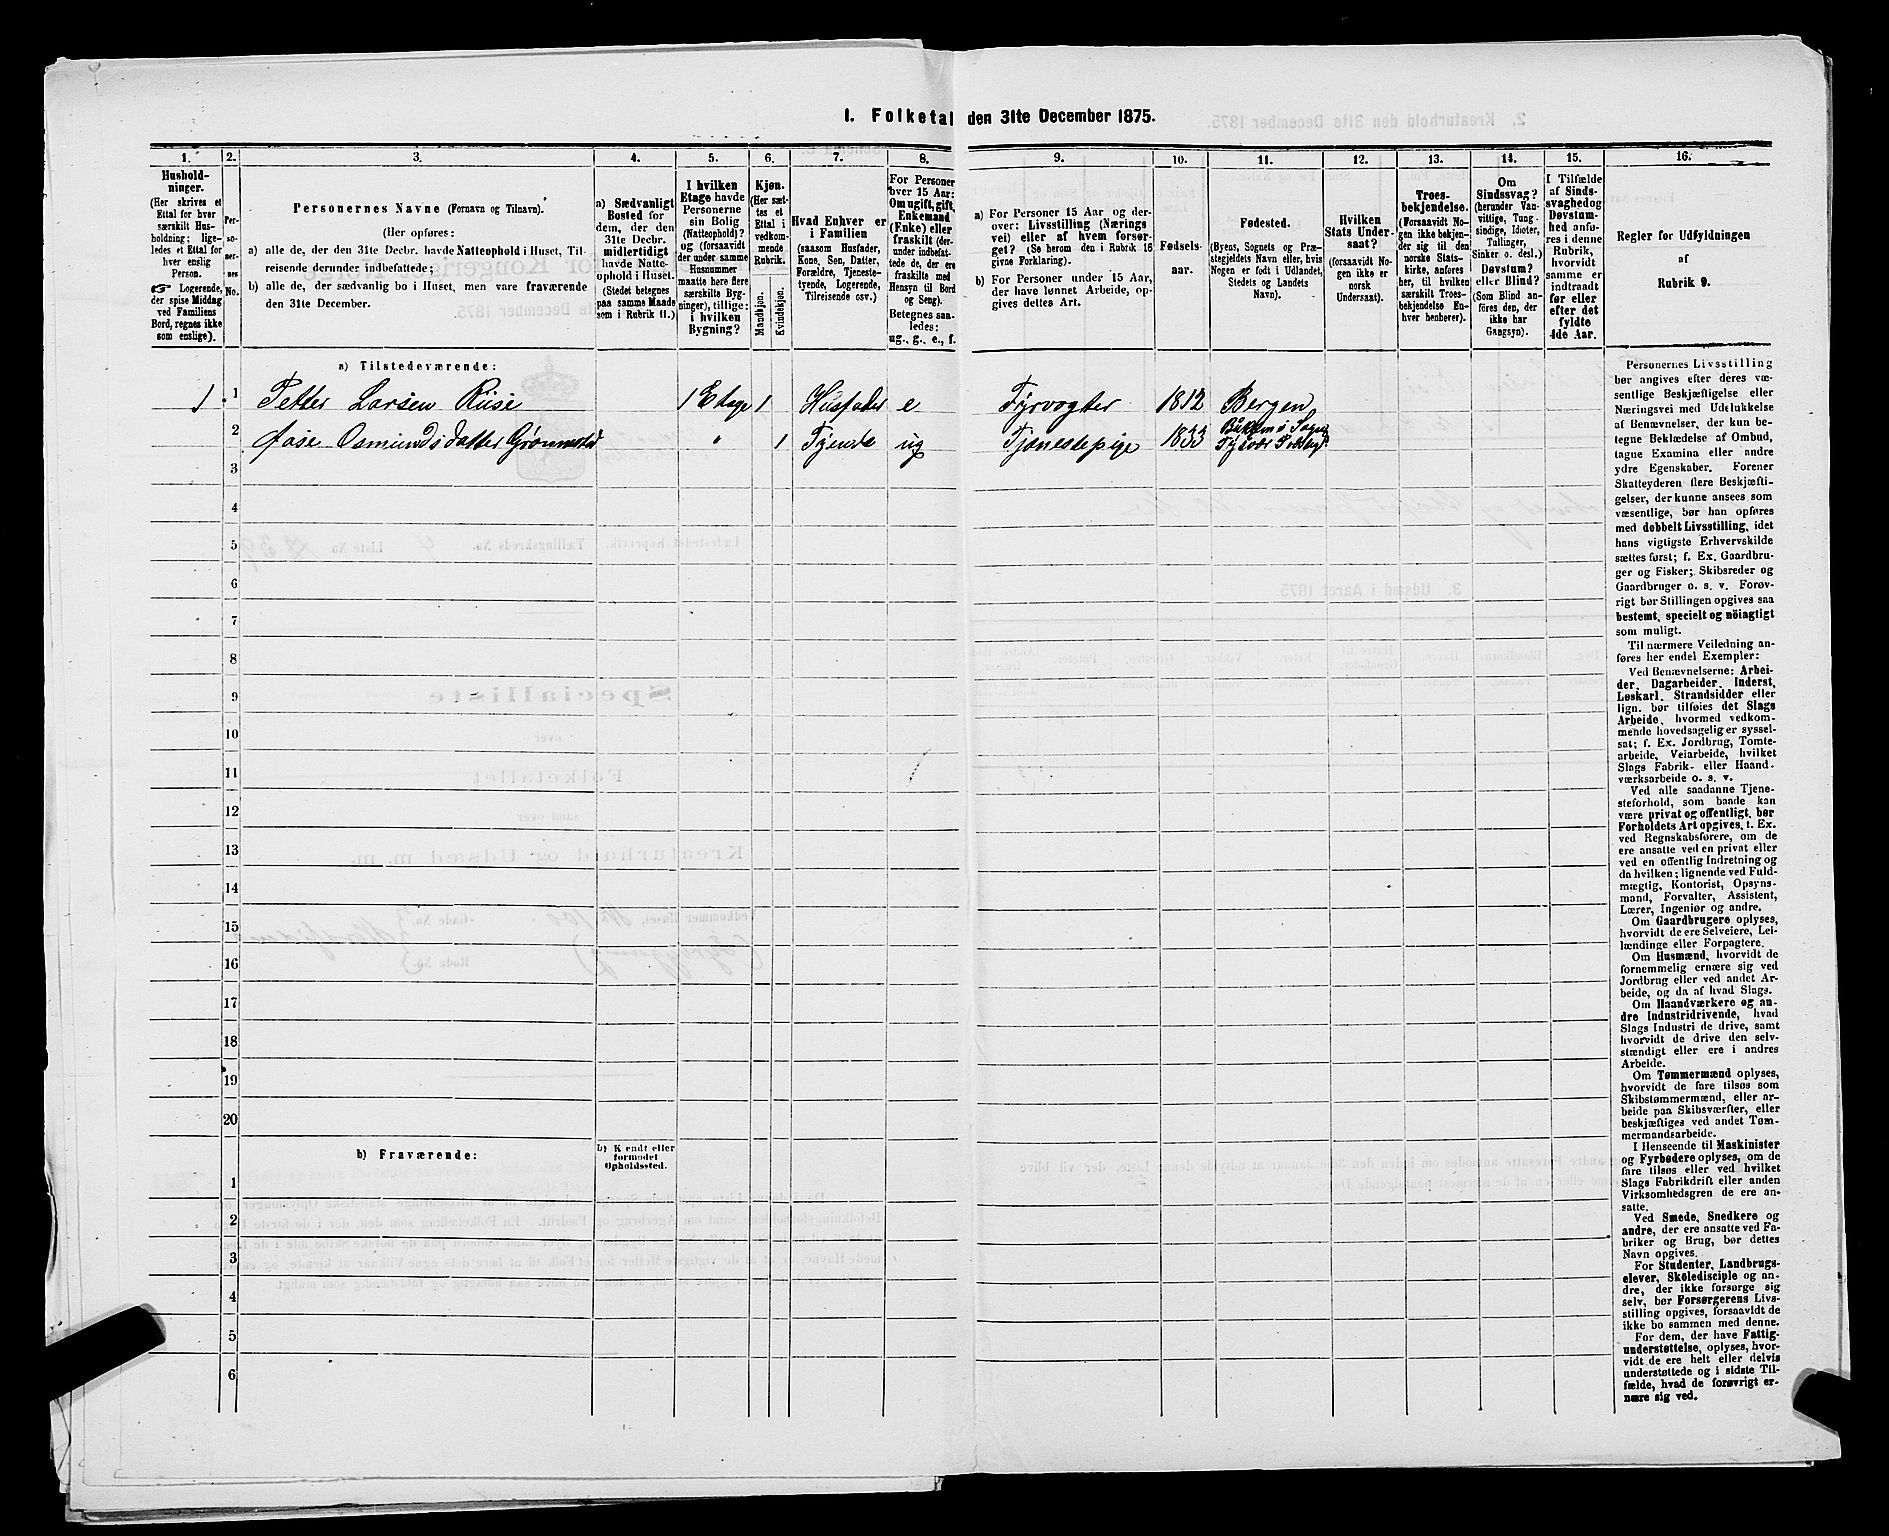 1. Folketal den 31te December 1875.
1. 2. 3. 4. 5. 6. 7. 8. 9. 10. 11. 12. 13. 14. 15. 16.
Hushold-
ninger.
(Her skrives et
Ettal for hver
særskilt Hus-
holdning; lige-
ledes et Ettal for
hver enslig
Person.
☞ Logerende,
der spise Middag
ved Familiens
Bord, regnes ikke
som enslige).
Per-
so-
ner-
nes
No.
Personernes Navne (Fornavn og Tilnavn).
(Her opføres:
a) alle de, der den 31te Decbr. havde Natteophold i Huset, Til-
reisende derunder indbefattede;
b) alle de, der sædvanlig bo i Huset, men vare fraværende
den 31te December.
a) Sædvanligt
Bosted for
dem, der den
31te Decbr.
midlertidigt
havde Natte-
ophold i Huset.
(Stedet betegnes
paa samme Maade
som i Rubrik 11.)
I hvilken
Etage havde
Personerne
sin Bolig
(Natteophold)?
og (forsaavidt
der under samme
Husnummer
maatte høre flere
særskilte Byg-
ninger), tillige:
i hvilken
Bygning?
Kjøn.
(Her sæt-
tes et
Ettal i
vedkom-
mende
Rubrik.
Mandkjøn.
Kvindekjøn.
Hvad Enhver er
i Familien
(saasom Husfader,
Kone, Søn, Datter,
Forældre, Tjeneste-
tyende, Logerende,
Tilreisende osv.)
For Personer
over 15 Aar:
Om ugift, gift,
Enkemand
(Enke) eller
fraskilt (der-
under indbefat-
tede de, der ere
fraskilte med
Hensyn til Bord
og Seng).
Betegnes saa-
ledes:
ug., g., e., f.
a) For Personer 15 Aar og der-
over: Livsstilling (Nærings
vei) eller af hvem forsør-
get? (Se herom den i Rubrik 16
givne Forklaring).
b) For Personer under 15 Aar,
der have lønnet Arbeide, op-
gives dettes Art.
Fødsels-
aar.
Fødested.
(Byens, Sognets og Præ-
stegjeldets Navn eller, hvis
Nogen er født i Udlandet,
Stedets og Landets
Navn).
Hvilken
Stats Under-
saat?
(forsaavidt No-
gen ikke er
norsk
Undersaat).
Troes-
bekjendelse.
(Forsaavidt No-
gen ikke bekjen-
der sig til den
norske Stats-
kirke, anføres
her, til hvilken
særskilt Troes-
bekjendelse En-
hver henhører).
Om
Sindssvag?
(herunder Van-
vittige, Tung-
sindige, Idioter,
Tullinger,
Sinker o. desl.)
Døvstum?
eller Blind?
(Som Blind an-
føres den, der
ikke har
Gangsyn).
I Tilfælde
af Sinds-
svaghed og
Døvstum-
hed anfø-
res i denne
Rubrik,
hvorvidt
samme er
indtraadt
før eller
efter det
fyldte
4de Aar.
Regler for Udfyldningen
af
Rubrik 9.
a) Tilstedeværende:
1 1 Petter Larsen Riise 1 Etage 1 Husfader e Fyrvogter 1812 Bergen
2 Aase Osmundsdatter Grønnestad " 1 Tyende ug Tjenestepige 1833 Sogn
3
4
5
6
7
8
9
10
11
12
13
14
15
16
17
18
19
20
b) Fraværende:
b) Kendt eller
formodet
Opholdssted.
1
2
3
4
5
6
Personernes Livsstilling
bør angives efter deres væ-
sentlige Beskjæftigelse eller
Næringsvei med Udelukkelse
af Benævnelser, der kun be-
tegne Beklædelse af Ombud,
tagne Examina eller andre
ydre Egenskaber. Forener
Skatteyderen flere Beskjæfti-
gelser, der kunne ansees som
væsentlige, bør han opføres
med dobbelt Livsstilling, idet
hans vigtigste Erhvervskilde
sættes først; f. Ex. Gaardbru-
ger og Fisker; Skibsreder og
Gaardbruger o. s. v. Forøv-
rigt bør Stillingen opgives saa
bestemt, specielt og nöiagtigt
som muligt.
Til nærmere Veiledning an-
føres her endel Exempler:
Ved Benævnelserne: Arbei-
der, Dagarbeider, Inderst,
Løskarl, Strandsidder eller
lign. bør tilføies det Slags
Arbeide, hvormed vedkom-
mende hovedsagelig er syssel-
sat; f. Ex. Jordbrug, Tomte-
arbeide, Veiarbeide, hvilket
Slags Fabrik- eller Haand-
værksarbeide o. s. v.
Ved alle saadanne Tjene-
steforhold, som baade kan
være privat og offentligt, bør
Forholdets Art opgives, t. Ex.
ved Regnskabsførere, om de
ere ansatte ved en privat eller
ved en offentlig Indretning og
da hvilken; lignende ved Fuld-
mægtig, Kontorist, Opsyns-
mand, Forvalter, Assistent,
Lærer, Ingeniør og andre.
Om Gaardbrugere oplyses,
hvorvidt de ere Selveiere, Lei-
lændinge eller Forpagtere.
Om Husmænd, hvorvidt de
fornemmelig ernære sig ved
Jordbrug eller ved andet Ar-
beide, og da af hvad Slags.
Om Haandværkere og an-
dre Industridrivende, hvad
Slags Industri de drive, samt
hvorvidt de drive den selv-
stændigt eller ere i andres
Arbeide.
Om Tømmermænd oplyses,
hvorvidt de fare tilsøs som
Skibstømmermænd, eller ar-
beide paa Skibsværfter, eller
beskjæftiges ved andet Tøm-
mermandsarbeide.
I Henseende til Maskinister
og Fyrbødere oplyses, om de
fare tilsøs eller ved hvilket
Slags Fabrikdrift eller anden
Virksomhedsgren de ere an-
satte.
Ved Smede, Snedkere og
andre, der ere ansatte ved Fa-
briker og Brug, bør dettes
Navn opgives.
For Studenter, Landbrugs-
elever, Skoledisciple og an-
dre, der ikke forsørge sig
selv, bør Forsørgerens Livs-
stilling opgives, forsaavidt de
ikke bo sammen med denne.
For dem, der have Fattig-
understøttelse, oplyses, hvor-
vidt de ere helt eller delvis
understøttede og i sidste Til-
fælde, hvad de forøvrigt er-
nære sig ved.